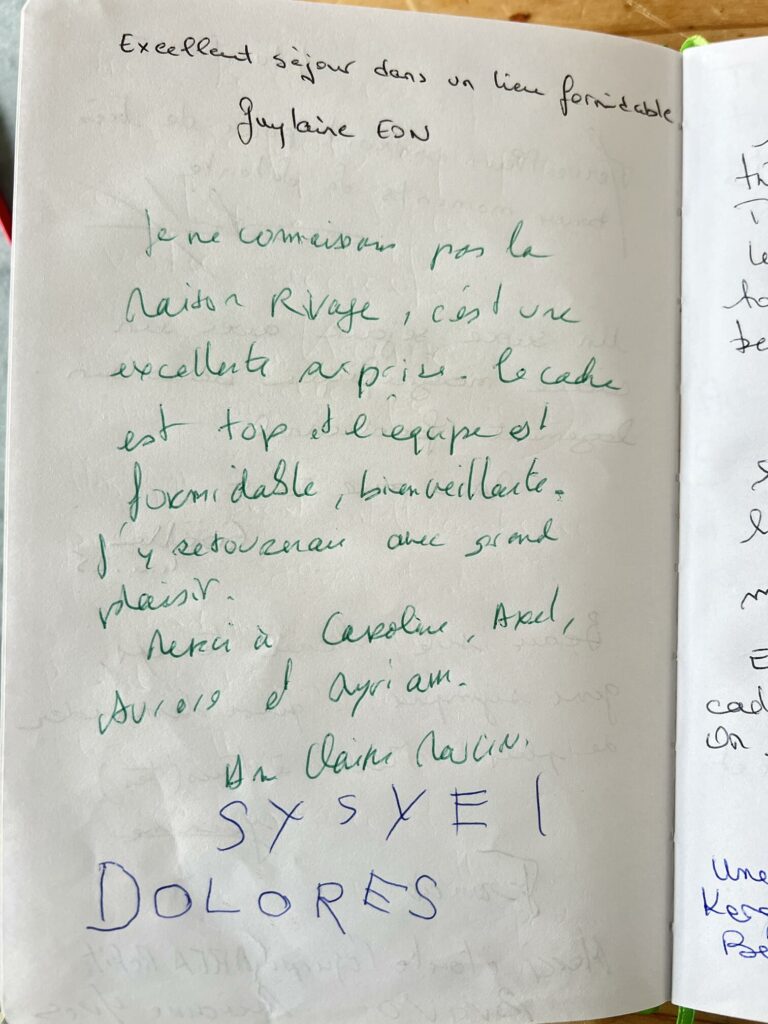 Excellent séjour dans un lieu formidable
Guylaine EON
Je ne connaissais pas la
Maison Rivage, c'est une
excellente surprise. le cadre
est top et l'équipe est
formidable, bienveillante.
J'y retournerai avec grand
plaisir.
Merci à Caroline, Axel,
Aurore et
Claire
SYSYEI
DOLORES
tr
le
be
E
cad
On
Une
Be